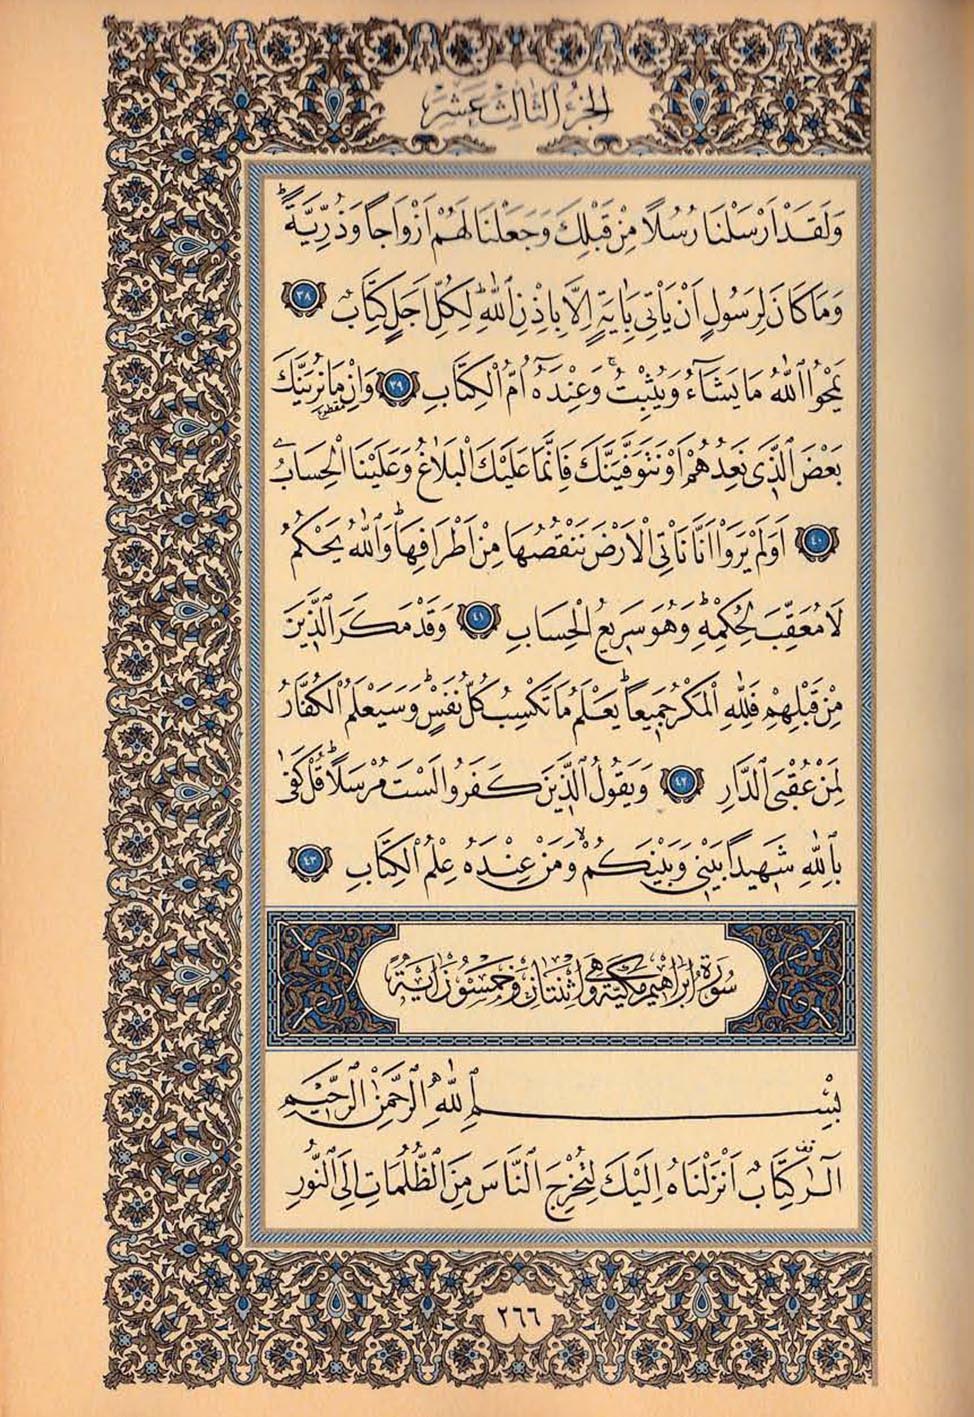 الجزء الثالث عشر
وَلَقَدْ اَرْسَلْنَا رُسُلًا مِنْ قَبْلِكَ وَجَعَلْنَا لَهُمْ اَزْوَاجًا وَذُرِّيَّةًۜ
وَمَا كَانَ لِرَسُولٍ اَنْ يَأْتِيَ بِاٰيَةٍ اِلَّا بِاِذْنِ اللّٰهِۜ لِكُلِّ اَجَلٍ كِتَابٌ ﴿٣٨﴾
يَمْحُوا اللّٰهُ مَا يَشَٓاءُ وَيُثْبِتُۚ وَعِنْدَهُٓ اُمُّ الْكِتَابِ ﴿٣٩﴾ وَاِنْ مَا نُرِيَنَّكَ
بَعْضَ الَّذ۪ي نَعِدُهُمْ اَوْ نَتَوَفَّيَنَّكَ فَاِنَّمَا عَلَيْكَ الْبَلَاغُ وَعَلَيْنَا الْحِسَابُ
﴿٤٠﴾ اَوَلَمْ يَرَوْا اَنَّا نَأْتِي الْاَرْضَ نَنْقُصُهَا مِنْ اَطْرَافِهَاۜ وَاللّٰهُ يَحْكُمُ
لَا مُعَقِّبَ لِحُكْمِه۪ۜ وَهُوَ سَر۪يعُ الْحِسَابِ ﴿٤١﴾ وَقَدْ مَكَرَ الَّذ۪ينَ
مِنْ قَبْلِهِمْ فَلِلّٰهِ الْمَكْرُ جَم۪يعًاۜ يَعْلَمُ مَا تَكْسِبُ كُلُّ نَفْسٍۜ وَسَيَعْلَمُ الْكُفَّارُ
لِمَنْ عُقْبَى الدَّارِ ﴿٤٢﴾ وَيَقُولُ الَّذ۪ينَ كَفَرُوا لَسْتَ مُرْسَلًاۜ قُلْ كَفٰى
بِاللّٰهِ شَه۪يدًا بَيْن۪ي وَبَيْنَكُمْۙ وَمَنْ عِنْدَهُ عِلْمُ الْكِتَابِ ﴿٤٣﴾
سُورَةُ اِبْرٰه۪يمَ مَكِّيَّةٌ وَهِيَ اثْنَتَانِ وَخَمْسُونَ اٰيَةً
بِسْمِ اللّٰهِ الرَّحْمٰنِ الرَّح۪يمِ
الٓرٰ كِتَابٌ اَنْزَلْنَاهُ اِلَيْكَ لِتُخْرِجَ النَّاسَ مِنَ الظُّلُمَاتِ اِلَى النُّورِ
٢٦٦